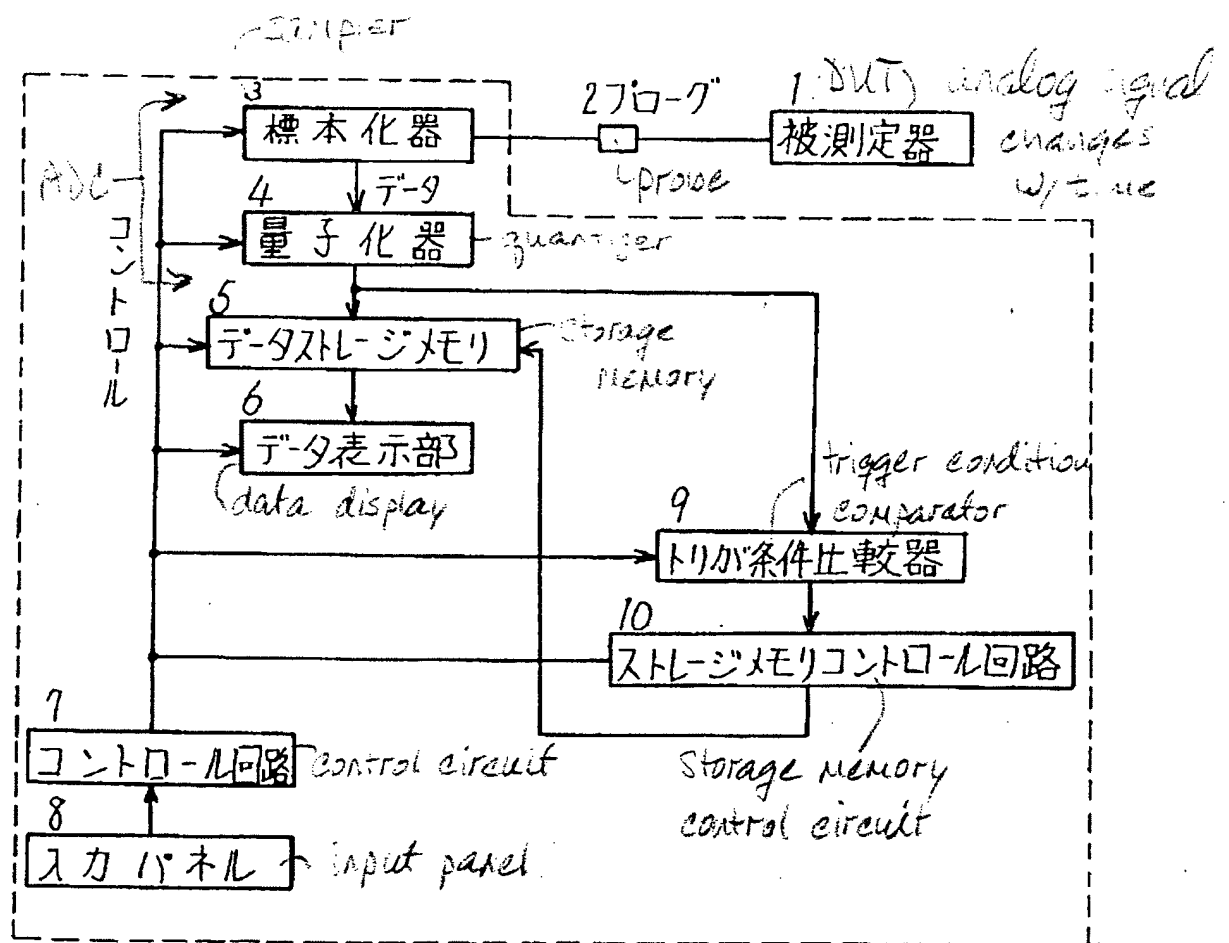 3
標本化器
2プローグ
probe
1 (DUT) analog signal
changes
w/ time
被測定器
ADC
コントロール
データ
4
量子化器
quantizer
5
データストレージメモリ
storage
memory
6
データ表示部
data display
trigger condition
comparator
9
トリガ条件比較器
10
ストレージメモリコントロール回路
7
コントロール回路
control circuit
storage memory
control circuit
8
入力パネル
input panel